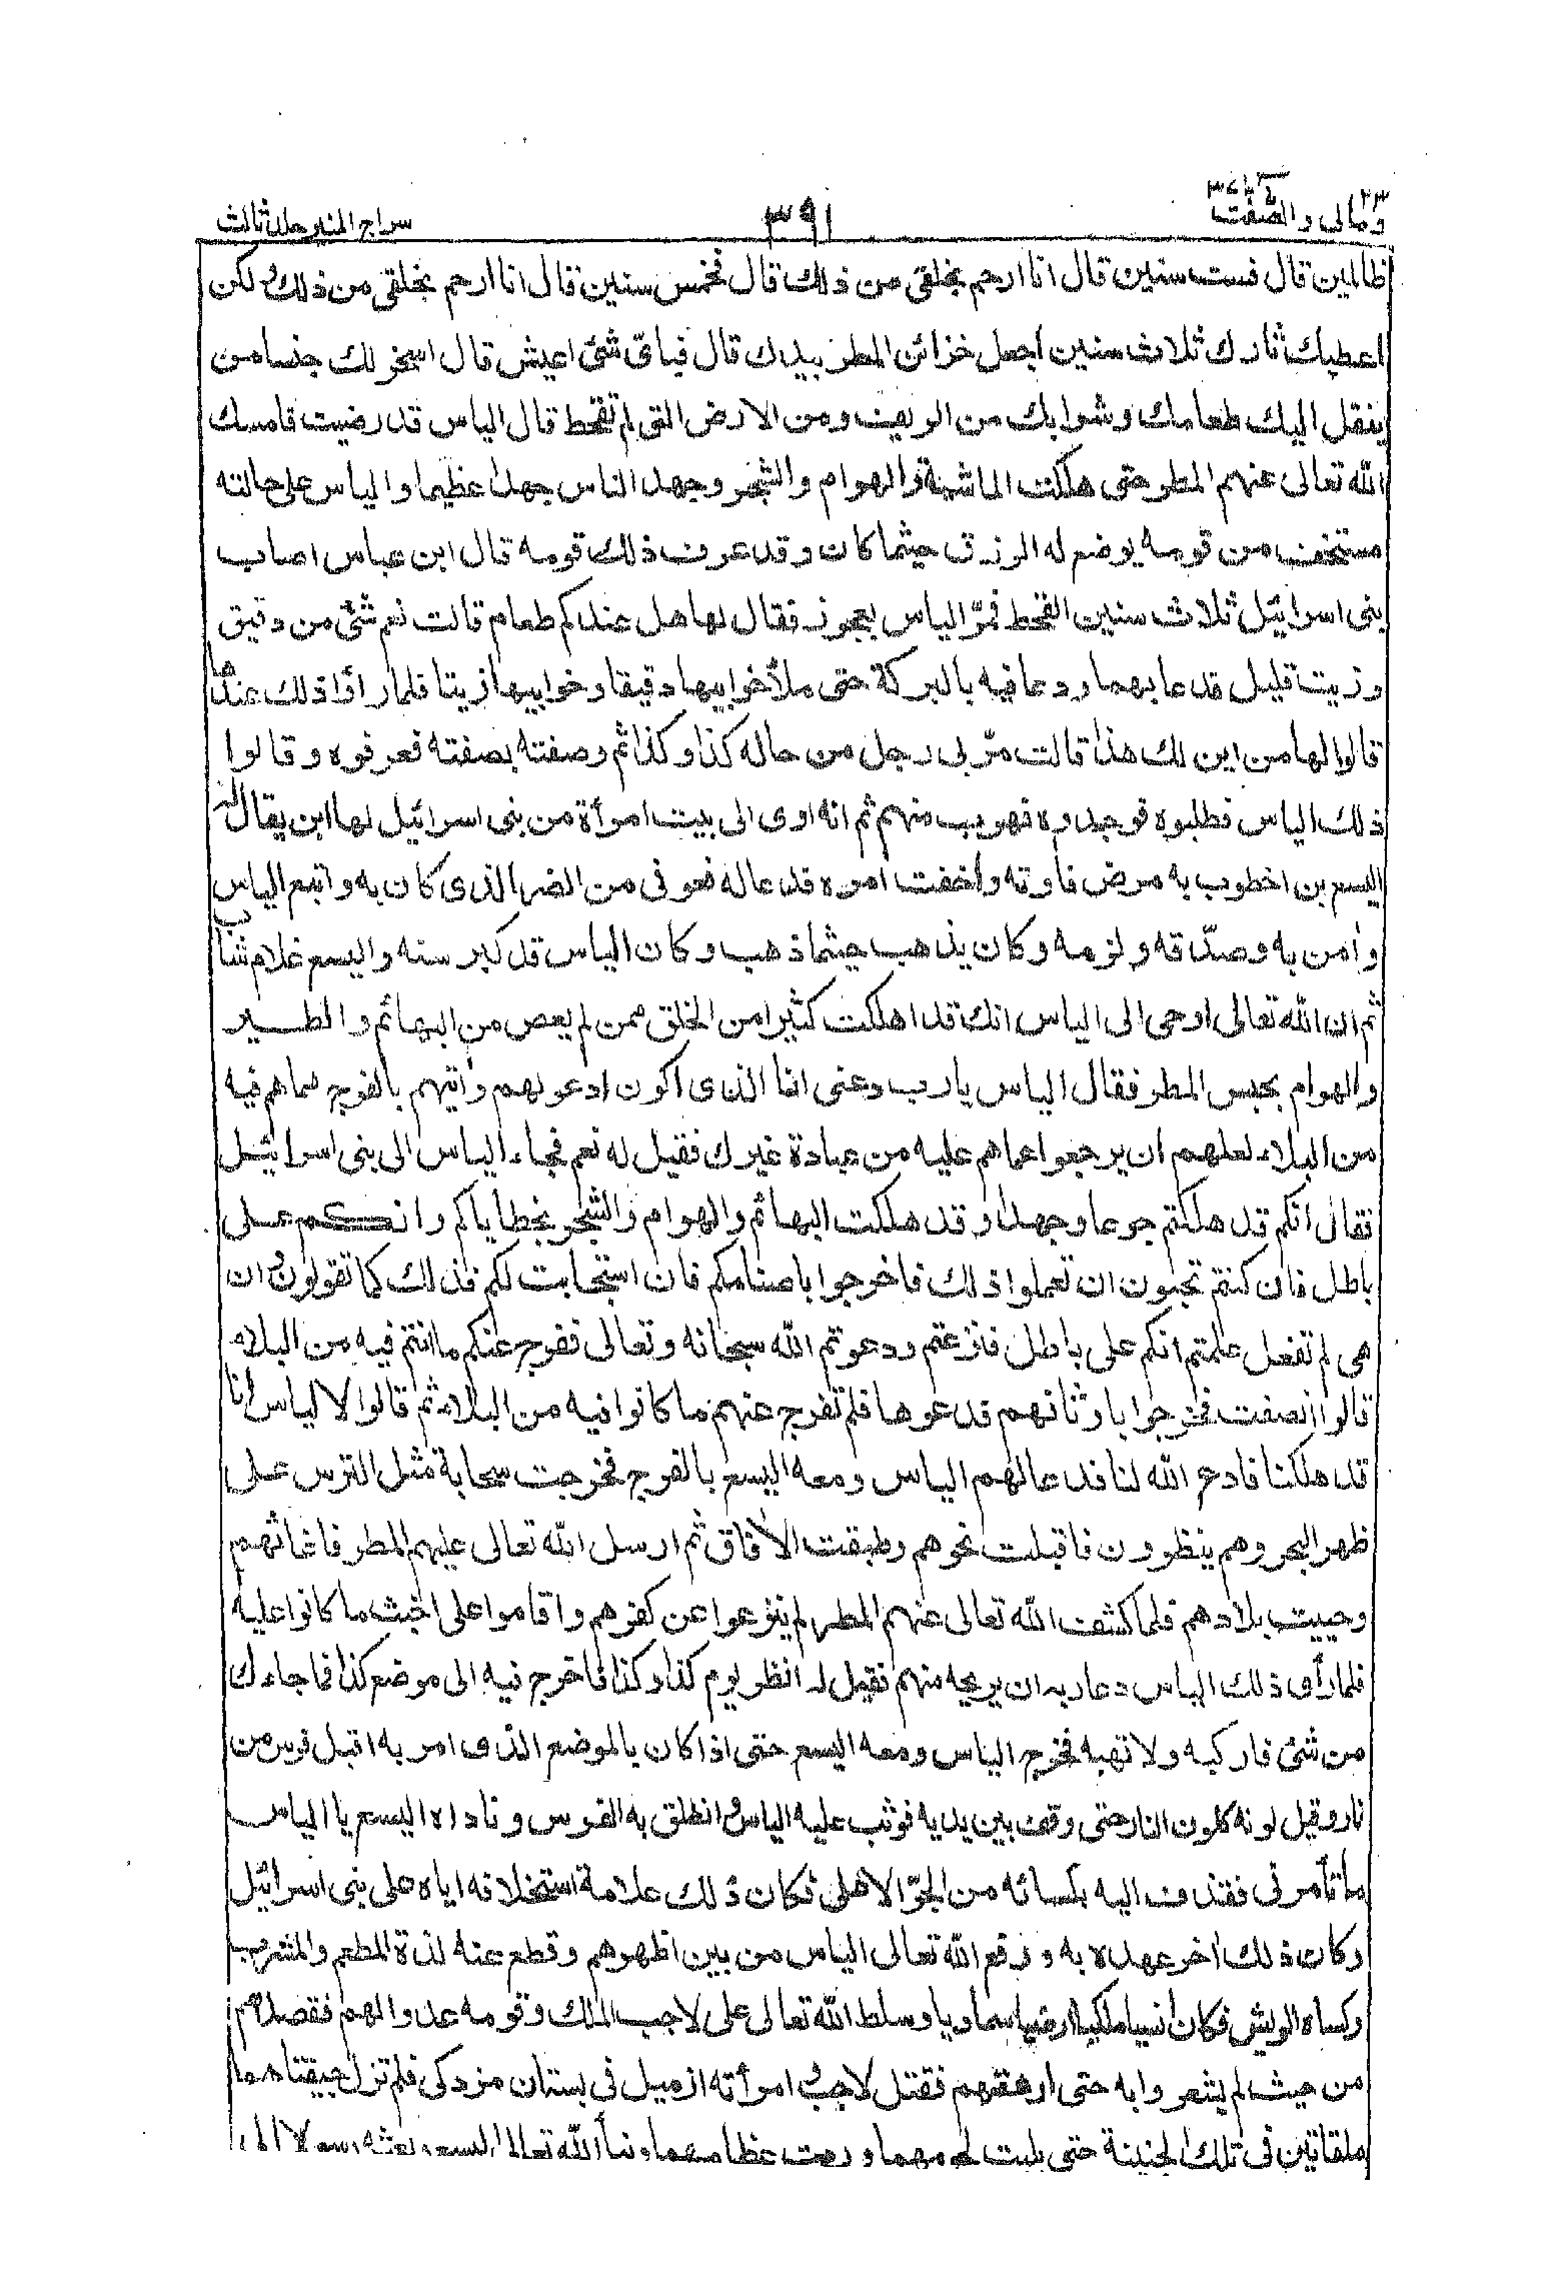 ومالى ٢٣ والصفت ٣٧
٣٩١
سراج المنير جلد ثالث
ظالمين قال فست سنين قال انا ارحم بخلقى من ذلك قال فخمس سنين قال انا ارحم بخلقى من ذلك ولكن
اعطيك ثارك ثلاث سنين اجعل خزائن المطر بيدك قال فباى شئ اعيش قال اسخر لك جنسا من
ينقل اليك طعامك وشرابك من الريف ومن الارض التى لم تقحط قال الياس قد رضيت فامسك
الله تعالى عنهم المطر حتى هلكت الماشية والهوام والشجر وجهد الناس جهدا عظيما والياس على حالته
مستخف من قومه يوضع له الرزق حيثما كان وقد عرف ذلك قومه قال ابن عباس اصاب
بنى اسرائيل ثلاث سنين القحط فمرّ الياس بعجوز فقال لها هل عندكم طعام قالت نعم شئ من دقيق
وزيت قليل فدعا بهما ودعا فيه بالبركة حتى ملأ خوابيها دقيقا وخوابيها زيتا فلما راوا ذلك عندها
قالوا لها من اين لك هذا قالت مرّ بى رجل من حاله كذا وكذا ثم وصفته بصفته فعرفوه وقالوا
ذلك الياس فطلبوه فوجدوه فهرب منهم ثم انه اوى الى بيت امرأة من بنى اسرائيل لها ابن يقال له
اليسع بن اخطوب به مرض فاوته واخفت امره فدعا له فعوفى من الضر الذى كان به واتبع الياس
وامن به وصدّقه ولزمه وكان يذهب حيثما ذهب وكان الياس قد كبر سنه واليسع غلام شاب
ثم ان الله تعالى اوحى الى الياس انك قد اهلكت كثيرا من الخلق ممن لم يعص من البهائم والطير
والهوام بحبس المطر فقال الياس يارب دعنى انا الذى اكون ادعو لهم واتيهم بالفرج مما هم فيه
من البلاء لعلهم ان يرجعوا عما هم عليه من عبادة غيرك فقيل له نعم فجاء الياس الى بنى اسرائيل
فقال انكم قد هلكتم جوعا وجهدا وقد هلكت البهائم والهوام والشجر بخطاياكم وانكم على
باطل فان كنتم تحبون ان تعملوا ذلك فاخرجوا باصنامكم فان استجابت لكم فذلك كما تقولون وان
هى لم تفعل علمتم انكم على باطل فنزعتم ودعوتم الله سبحانه وتعالى ففرج عنكم ما انتم فيه من البلاء
قالوا انصفت فخرجوا باوثانهم فدعوها فلم تفرج عنهم ما كانوا فيه من البلاء ثم قالوا لالياس انا
قد هلكنا فادع الله لنا فدعا لهم الياس ومعه اليسع بالفرج فخرجت سحابة مثل الترس على
ظهر البحر وهم ينظرون فاقبلت نحوهم وطبقت الأفاق ثم ارسل الله تعالى عليهم المطر فاغاثهم
وحييت بلادهم فلما كشف الله تعالى عنهم المطر لم ينزعوا عن كفرهم واقاموا على اخبث ما كانوا عليه
فلما رأى ذلك الياس دعا ربه ان يريحه منهم فقيل له انظر يوم كذا وكذا فاخرج فيه الى موضع كذا فما جاءك
من شئ فاركبه ولا تهبه فخرج الياس ومعه اليسع حتى اذا كان بالموضع الذى امر به اقبل فرس من
نار وقيل لونه كلون النار حتى وقف بين يديه فوثب عليه الياس وانطلق به الفرس وناداه اليسع يا الياس
ما تأمرنى فقذف اليه بكسائه من الجوّ الاعلى فكان ذلك علامة استخلافه اياه على بنى اسرائيل
وكان ذلك اخر عهده به ورفع الله تعالى الياس من بين اظهرهم وقطع عنه لذة المطعم والمشرب
وكساه الريش فكان انسيا ملكيا ارضيا سماويا وسلط الله تعالى على لاجب الملك وقومه عدوا لهم فقصدهم
من حيث لم يشعروا به حتى ارهقهم فقتل لاجب وامرأته ازميل فى بستان مزدكى فلم تزل جيفتاهما
ملقاتين فى تلك الجنينة حتى بليت لحومهما ورمت عظامهما ونبأ الله تعالى اليسع وبعثه رسولا الى